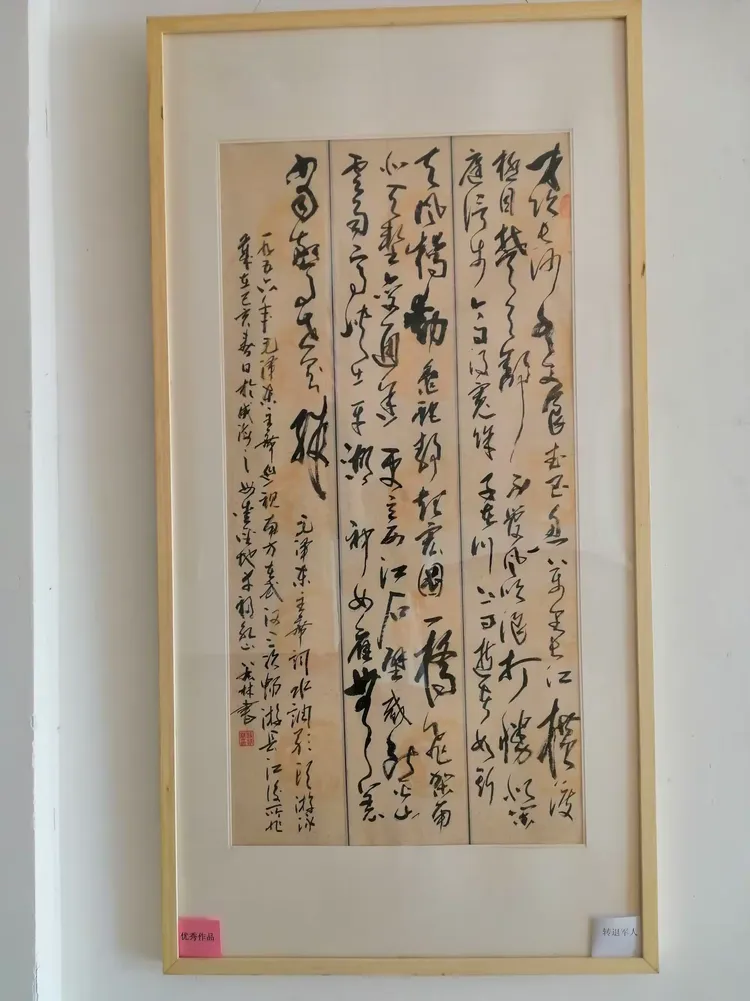 才饮长沙水又食武昌鱼万里长江横渡
极目楚天舒不管风吹浪打胜似闲
庭信步今日得宽馀子在川上曰逝者如斯
夫风樯动龟蛇静起宏图一桥飞架南
北天堑变通途更立西江石壁截断巫山
云雨高峡出平湖神女应无恙
当惊世界殊 毛泽东主席词水调歌头游泳
一九五六年毛泽东主席巡视南方在武汉三次畅游长江后所作
岁在己亥春日於威海 林书
优秀作品
转退军人